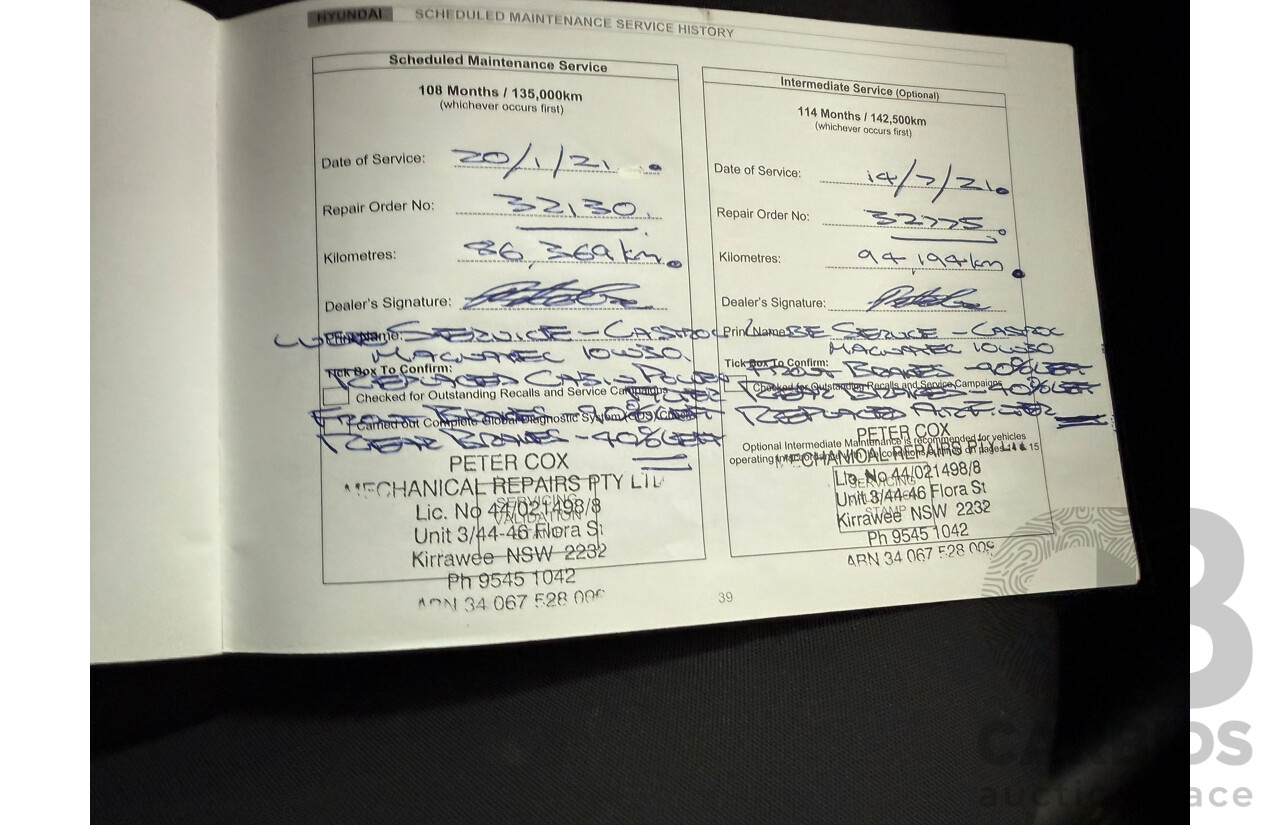 HYUNDAI SCHEDULED MAINTENANCE SERVICE HISTORY
Scheduled Maintenance Service
108 Months / 135,000km
(whichever occurs first)
Date of Service: 20/1/21.
Repair Order No: 32130.
Kilometres: 86,369km.
Dealer's Signature:
Print Name:
LUBE SERVICE - CASTROL
MAGNATEC 10W30.
Tick Box To Confirm:
REPLACED CABIN POLLEN
FILTER
Checked for Outstanding Recalls and Service Campaigns
FRONT BRAKES -
Carried out Complete Global Diagnostic System (GDS) Check
REAR BRAKES - 40% LEFT
SERVICING
VALIDATION
PETER COX
MECHANICAL REPAIRS PTY LTD
Lic. No 44/021498/8
Unit 3/44-46 Flora St
Kirrawee NSW 2232
Ph 9545 1042
ABN 34 067 528 006
Intermediate Service (Optional)
114 Months / 142,500km
(whichever occurs first)
Date of Service: 14/7/21.
Repair Order No: 32775.
Kilometres: 94,194km.
Dealer's Signature:
Print Name:
LUBE SERVICE - CASTROL
MAGNATEC 10W30
Tick Box To Confirm:
FRONT BRAKES - 40% LEFT
Checked for Outstanding Recalls and Service Campaigns
REAR BRAKES - 40% LEFT
REPLACED AIR FILTER
Optional Intermediate Maintenance is recommended for vehicles
operating in conditions on pages 14 & 15
SERVICING
STAMP
PETER COX
MECHANICAL REPAIRS PTY LTD
Lic. No 44/021498/8
Unit 3/44-46 Flora St
Kirrawee NSW 2232
Ph 9545 1042
ABN 34 067 528 006
39